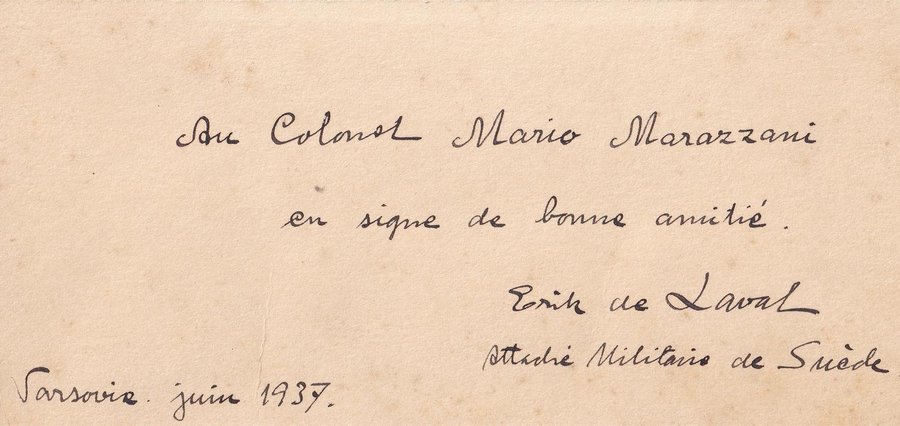 Au Colonel Mario Marazzani
en signe de bonne amitié.
Erik de Laval
Attaché Militaire de Suède
Varsovie. juin 1937.